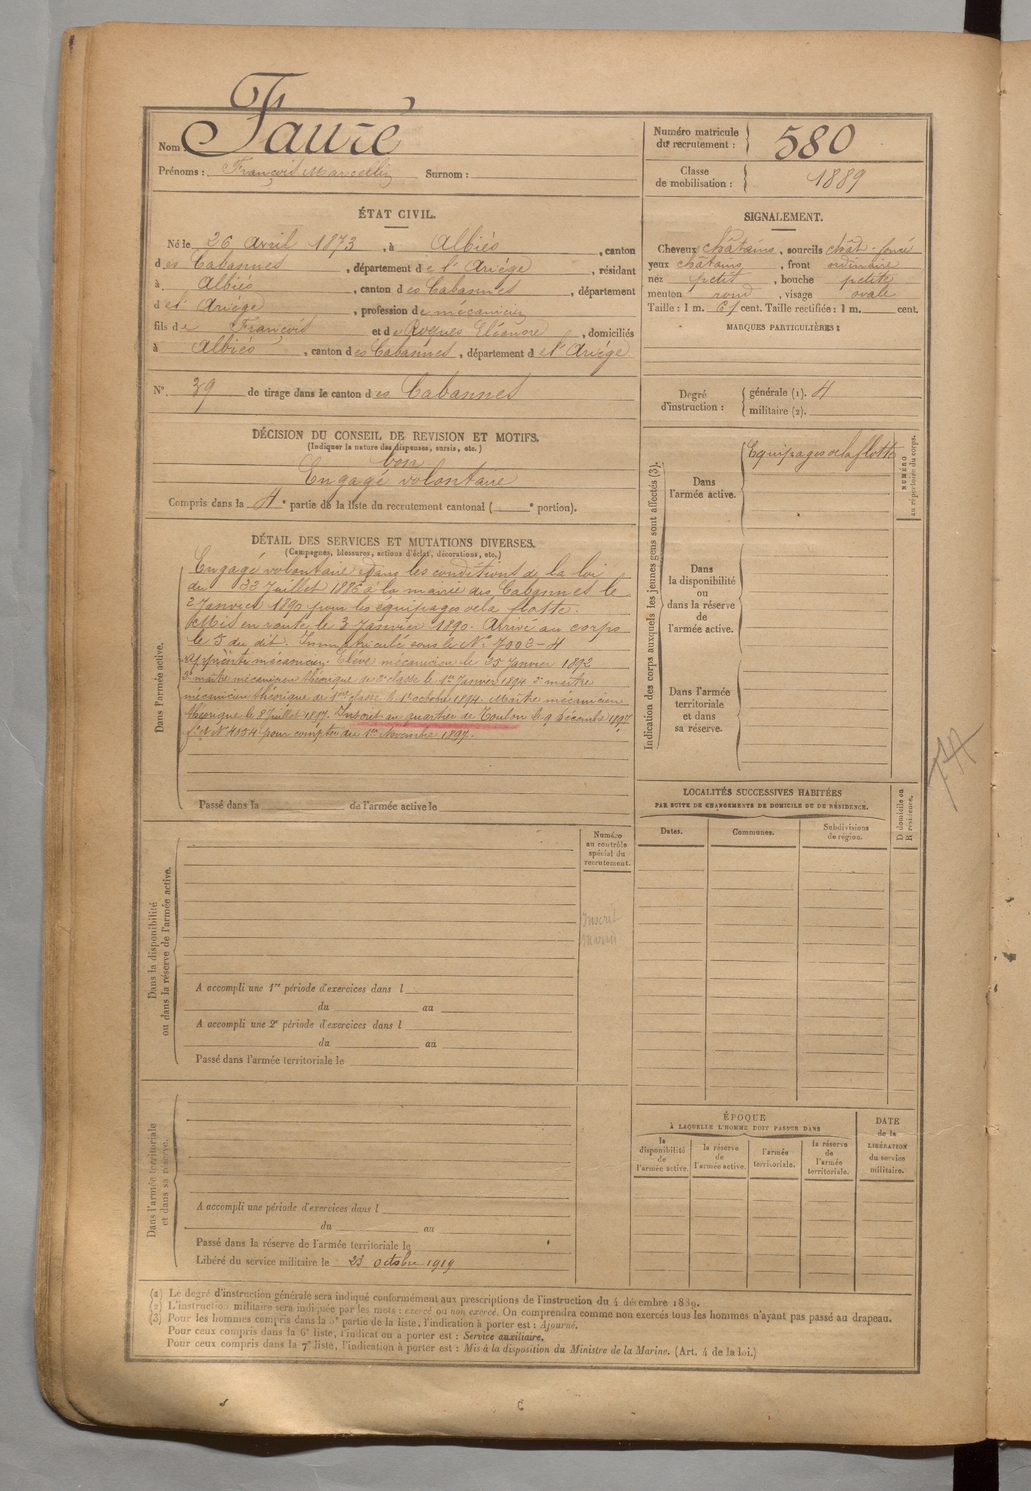 Nom : Fauré
Prénoms : François Marcellin Surnom :
Numéro matricule du recrutement : 580
Classe de mobilisation : 1889
ÉTAT CIVIL.
Né le 26 avril 1873, à Albiés, canton
des Cabannes, département de l'Ariége, résidant
à Albiés, canton des Cabannes, département
de l'Ariége, profession de mécanicien
fils de François et de Eléonore, domiciliés
à Albiés, canton des Cabannes, département de l'Ariége
N° 39 de tirage dans le canton des Cabannes
SIGNALEMENT.
Cheveux châtains, sourcils chât. foncé
yeux châtains, front ordinaire
nez petit, bouche petite
menton rond, visage ovale
Taille : 1 m. 61 cent. Taille rectifiée : 1 m. cent.
MARQUES PARTICULIÈRES :
Degré d'instruction : générale (1). 4
militaire (2).
DÉCISION DU CONSEIL DE REVISION ET MOTIFS.
(Indiquer la nature des dispenses, sursis, etc.)
bon
Engagé volontaire
Compris dans la 4e partie de la liste du recrutement cantonal ( e portion).
DÉTAIL DES SERVICES ET MUTATIONS DIVERSES.
(Campagnes, blessures, actions d'éclat, décorations, etc.)
Dans l'armée active.
Engagé volontaire dans les conditions de la loi
du Juillet à la mairie des Cabannes le
2 Janvier 1890 pour les équipages de la flotte.
Mis en route le 3 Janvier 1890. Arrivé au corps
le 5 du dit. Immatriculé sous le N° 7003-4
Apprenti mécanicien. Elève mécanicien le 25 Janvier 1892
2e maître mécanicien théorique de 2e classe le 1er Janvier 1894 2e maître
mécanicien théorique de 1ère classe le 1er octobre 1894. Maître mécanicien
théorique le 8 Juillet 1897. Inscrit au quartier de Toulon le 9 décembre 1897
f° N° 4154 pour compter du 1er Novembre 1897.
Passé dans la de l'armée active le
Indication des corps auxquels les jeunes gens sont affectés (3).
Dans l'armée active.
Equipages de la flotte
NUMÉRO au répertoire du corps.
Dans la disponibilité ou dans la réserve de l'armée active.
Dans l'armée territoriale et dans sa réserve.
LOCALITÉS SUCCESSIVES HABITÉES
PAR SUITE DE CHANGEMENTS DE DOMICILE OU DE RÉSIDENCE.
Dates. Communes. Subdivisions de région. D domicile ou R résidence.
Dans la disponibilité ou dans la réserve de l'armée active.
Numéro au contrôle spécial du recrutement.
Inscrit
A accompli une 1re période d'exercices dans l
du au
A accompli une 2e période d'exercices dans l
du au
Passé dans l'armée territoriale le
Dans l'armée territoriale et dans sa réserve.
A accompli une période d'exercices dans l
du au
Passé dans la réserve de l'armée territoriale le
Libéré du service militaire le 25 octobre 1919
ÉPOQUE
À LAQUELLE L'HOMME DOIT PASSER DANS
la disponibilité de l'armée active.
la réserve de l'armée active.
l'armée territoriale.
la réserve de l'armée territoriale.
DATE de la LIBÉRATION du service militaire.
(1) Le degré d'instruction générale sera indiqué conformément aux prescriptions de l'instruction du 4 décembre 1889.
(2) L'instruction militaire sera indiquée par les mots : exercé ou non exercé. On comprendra comme non exercés tous les hommes n'ayant pas passé au drapeau.
(3) Pour les hommes compris dans la 5e partie de la liste, l'indication à porter est : Ajourné.
Pour ceux compris dans la 6e liste, l'indication à porter est : Service auxiliaire.
Pour ceux compris dans la 7e liste, l'indication à porter est : Mis à la disposition du Ministre de la Marine. (Art. 4 de la loi.)